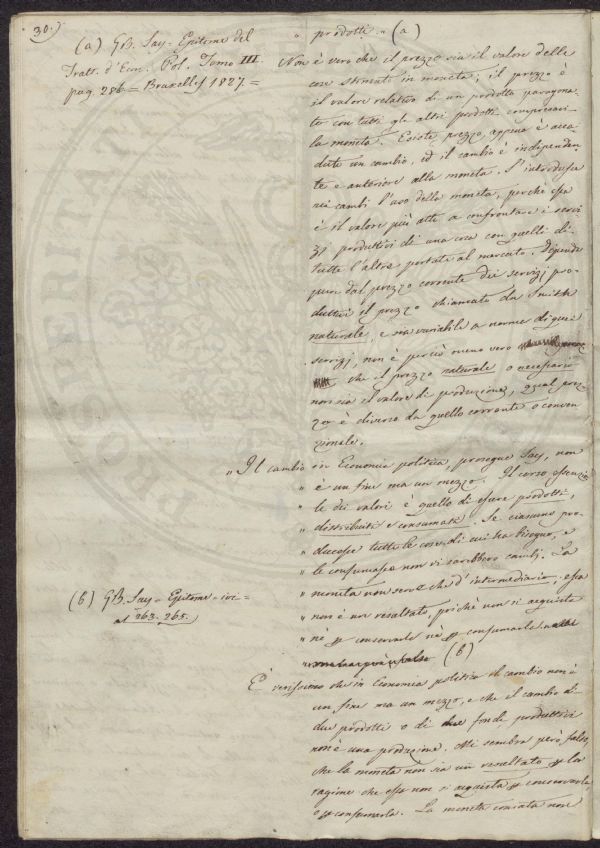 30.)
(a) GB. Say = Epitome del
Tratt. d'Econ. Pol. Tomo III.
pag. 286 = Bruxelles 1827. =
" prodotti. " (a)
Non è vero che il prezzo sia il valore delle
cose stimato in moneta; il prezzo è
il valore relativo di un prodotto paragona-
to con tutti gli altri prodotti compresavi
la moneta. Esiste prezzo appena è acca-
duto un cambio, ed il cambio è indipenden-
te e anteriore alla moneta. S'introdusse
nei cambi l'uso della moneta, perchè essa
è il valore più atto a confrontare i servi
zj produttivi di una cosa con quelli di
tutte l'altre portate al mercato. Dipende
pure dal prezzo corrente dei servizj pro-
duttivi il prezzo chiamato da Smith
naturale, e ma variabile a norma di que'
servizj, non è perciò meno vero
che il prezzo naturale o necessario
non sia il valore di produzione, qual prez-
zo è diverso da quello corrente o conven
zionale.
" Il cambio in Economia politica, prosegue Say, non
" è un fine ma un mezzo. Il corso essenzia
" le dei valori è quello di essere prodotti,
" distribuiti e consumati. Se ciascuno pro-
" ducesse tutte le cose di cui ha bisogno, e
" le consumasse non vi sarebbero cambj. La
" moneta non serve che d'intermediario, essa
" non è un resultato, poichè non si acquista
" nè per conservarle nè per consumarle
(b)
(b) GB. Say = Epitome = ivi =
al 263. 265.
È verissimo che in Economia politica il cambio non è
un fine ma un mezzo, e che il cambio di
due prodotti o di due fondi produttivi
non è una produzione. Mi sembra però falso,
che la moneta non sia un resultato per la
ragione che essa non si acquista per conservarla
o per consumarla. La moneta coniata non